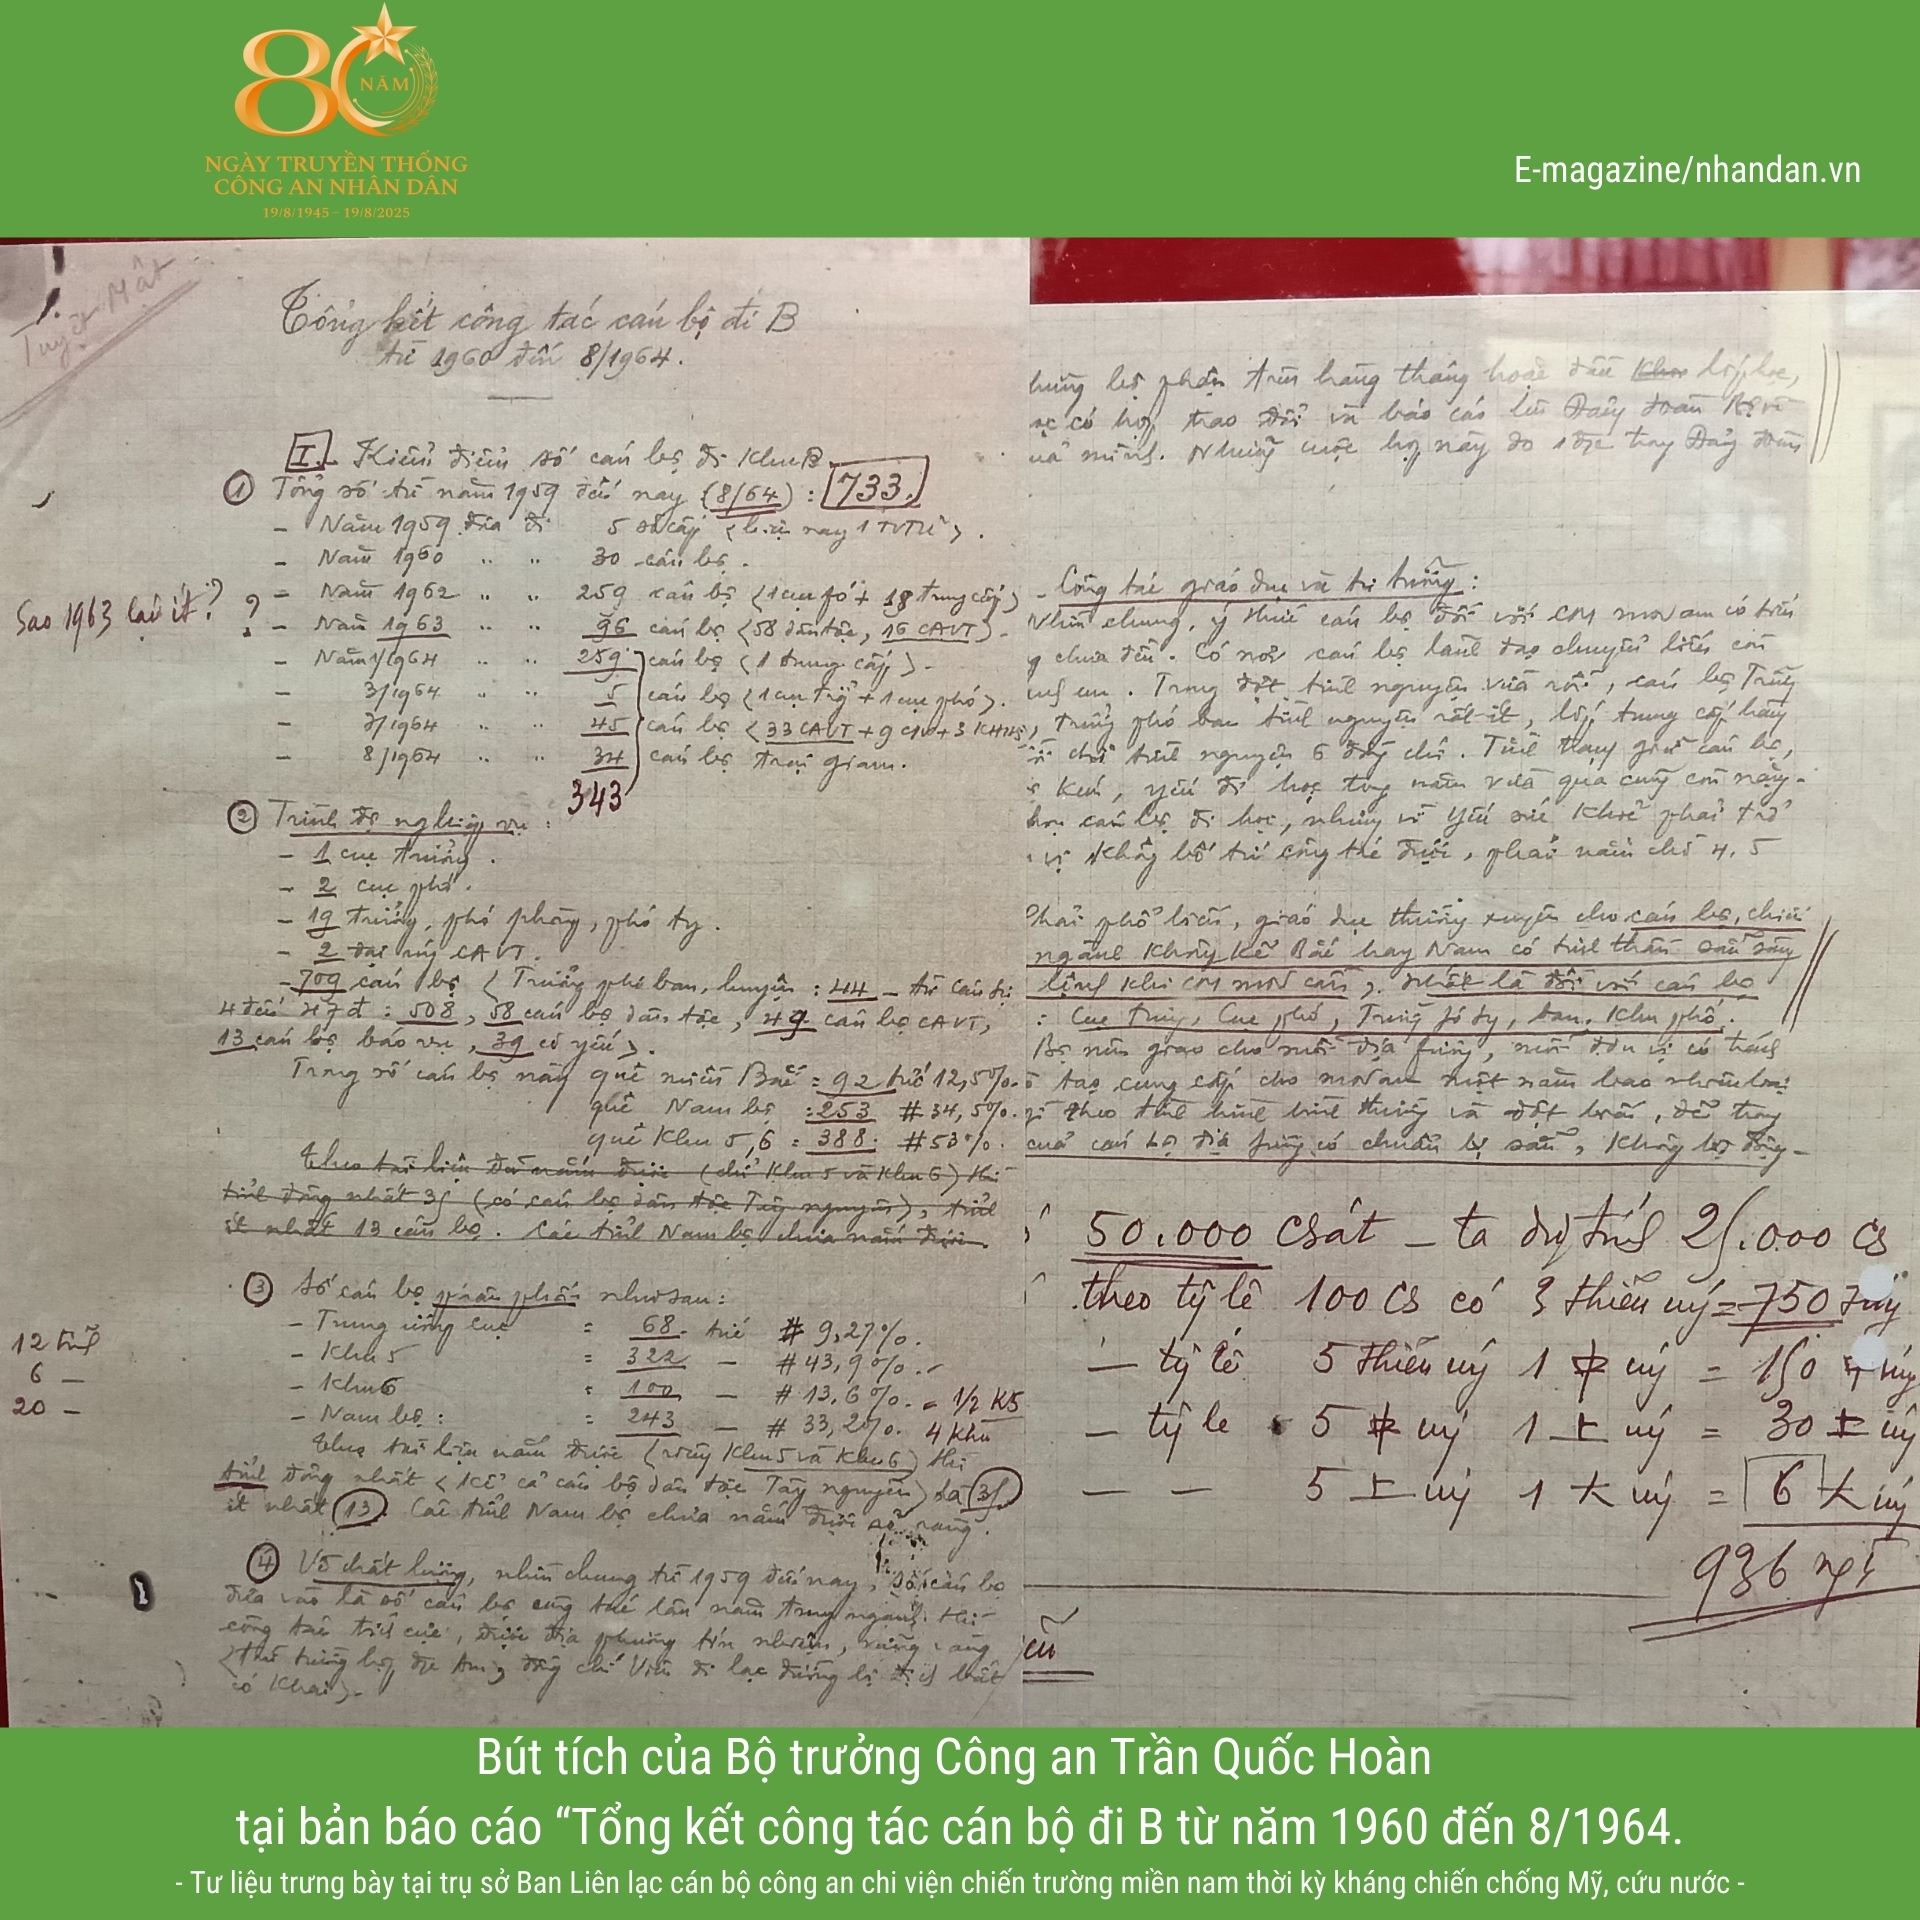 80 NĂM
NGÀY TRUYỀN THỐNG
CÔNG AN NHÂN DÂN
19/8/1945 – 19/8/2025
E-magazine/nhandan.vn
Tuyệt Mật
Tổng kết công tác cán bộ đi B
từ 1960 đến 8/1964.
I. Kiểm điểm số cán bộ đi Khu B.
① Tổng số từ năm 1959 đến nay (8/64) : 733.
- Năm 1959 đưa đi 5 sơ cấp
- Năm 1960 " " 30 cán bộ.
- Năm 1962 " " 259 cán bộ (1 cục fó + 18 trung cấp)
Sao 1963 lại ít? ? - Năm 1963 " " 96 cán bộ (58 dân tộc, 16 CAVT).
- Năm 1/1964 " " 259 cán bộ (1 trung cấp).
- 3/1964 " " 5 cán bộ (1 cục trg + 1 cục phó).
- 7/1964 " " 45 cán bộ (33 CAVT + 9
- 8/1964 " " 34 cán bộ trại giam.
343
② Trình độ nghiệp vụ :
- 1 cục trưởng.
- 2 cục phó.
- 19 trưởng, phó phòng, phó ty.
- 2 đại úy CAVT.
- 709 cán bộ (Trưởng phó ban, huyện : 44 - từ cán sự
4 đến : 508, 58 cán bộ dân tộc, 49 cán bộ CAVT,
13 cán bộ bảo vệ, 39 cơ yếu).
Trong số cán bộ này quê miền Bắc = 92 tức 12,5%.
quê Nam bộ : 253 # 34,5%.
quê Khu 5,6 = 388. # 53%.
Theo tài liệu đã nắm được (chỉ Khu 5 và Khu 6) thì
tỉnh đông nhất 35 (có cán bộ dân tộc Tây nguyên), tỉnh
ít nhất 13 cán bộ. Các tỉnh Nam bộ chưa nắm được.
③ Số cán bộ phân phối như sau :
- Trung ương cục = 68. tức # 9,27%.
12 tỉnh - Khu 5 = 322 - # 43,9%.
6 - - Khu 6 = 100 - # 13,6%. = 1/2 K5
20 - - Nam bộ : = 243 - # 33,2%. 4 khu
Theo tài liệu nắm được (riêng Khu 5 và Khu 6) thì
tỉnh đông nhất (kể cả cán bộ dân tộc Tây nguyên) là 35
ít nhất 13. Các tỉnh Nam bộ chưa nắm được rõ ràng.
④ Về chất lượng, nhìn chung từ 1959 đến nay, số cán bộ
đưa vào là số cán bộ công tác lâu năm trong ngành, thì
công tác tích cực, được địa phương tín nhiệm,
đồng chí Viên đi lạc đường bị địch bắt
có khai).
hàng tháng hoặc
có họp trao đổi và báo cáo lên Đảng đoàn
của mình. Những cuộc họp này do 1 đ/c trong Đảng đoàn
- Công tác giáo dục và tư tưởng :
Nhìn chung, ý thức cán bộ đối với CM m. Nam có tiến
chưa đều. Có nơi cán bộ lãnh đạo chuyển biến còn
Trong đợt tình nguyện vừa rồi, cán bộ Trưởng
trưởng phó ban tình nguyện rất ít, lớp trung cấp hàng
chỉ tình nguyện 6 đồng chí.
kém, yếu đi học trong năm vừa qua cũng còn nặng.
cán bộ đi học, nhưng vì yếu sức khoẻ phải trở
vì không bố trí công tác được, phải nằm chờ 4, 5
Phải phổ biến, giáo dục thường xuyên cho cán bộ, chiến
ngành không kể Bắc hay Nam có tinh thần sẵn sàng
lệnh khi CM m. Nam cần, nhất là đối với cán bộ
: Cục trưởng, Cục phó, Trưởng fó ty, ban, Khu phố.
Bộ nên giao cho mỗi địa fương, mỗi đơn vị có trách
tạo cung cấp cho m. Nam một năm bao nhiêu
theo tình hình bình thường và đột xuất, để
của cán bộ địa fương có chuẩn bị sẵn, không bị động.
50.000 Csát - ta dự tính 25.000 CS
theo tỷ lệ 100 CS có 3 thiếu uý = 750
- tỷ lệ 5 thiếu uý 1 uý = 150 uý
- tỷ lệ 5 uý 1 uý = 30 uý
- - 5 uý 1 uý = 6 uý
936 ng
Bút tích của Bộ trưởng Công an Trần Quốc Hoàn
tại bản báo cáo “Tổng kết công tác cán bộ đi B từ năm 1960 đến 8/1964.
- Tư liệu trưng bày tại trụ sở Ban Liên lạc cán bộ công an chi viện chiến trường miền nam thời kỳ kháng chiến chống Mỹ, cứu nước -